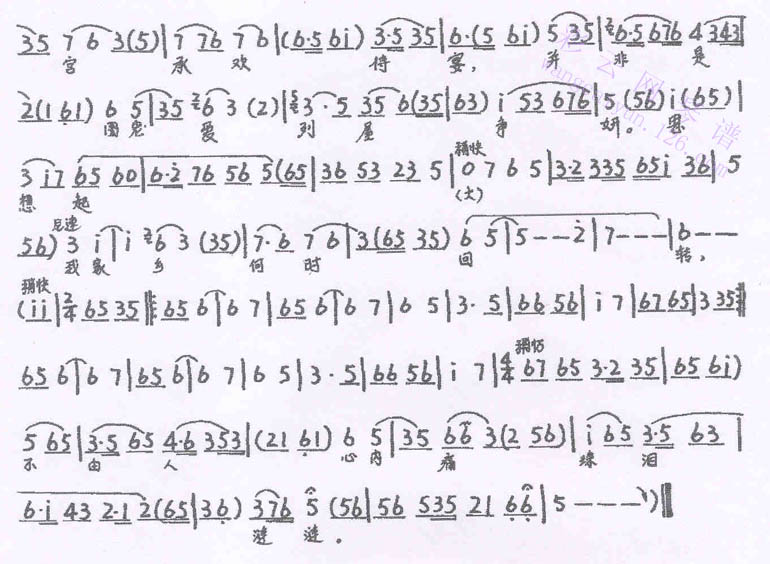 35 7 6 3(5)| 7 76 7 6 |(6·5 6i) 3·5 35| 6·(5 6i) 5 35| 6·5 676 4 343|
宫 承 欢 侍 宴, 并 非 是
2(1 61) 6 5 |35 6 3 (2)| 3·5 35 6(35|63) i 53 676| 5 (56) i(65)|
图 恩 爱 列 屋 争 妍。 思
3 i7 65 60| 6·2 76 56 5(65| 36 53 23 5| 0 7 6 5| 3·2 335 65i 36| 5
想 起 稍快 (大)
56) 3 i | i 6 3 (35)| 7·6 7 6 | 3(65 35) 6 5 | 5 - - 2| 7 - - -| 6 - -
我 家 乡 何 时 回 转,
稍快
(ii| 2/4 65 35 ‖ 65 6 | 6 7| 65 6 | 6 7| 6 5| 3· 5| 66 56| i 7| 67 65| 3 35 ‖
65 6 | 6 7| 65 6 | 6 7| 6 5| 3· 5| 66 56| i 7| 4/4 67 65 3·2 35| 65 6i)
5 65| 3·5 65 4·6 353|(21 61) 6 5| 35 66 3(2 56)| i 65 3·5 63|
不 由 人 心 内 痛 珠 泪
6·i 43 2·1 2(65| 36) 376 5 (56| 56 535 21 66| 5 - - -)‖
涟 涟 。